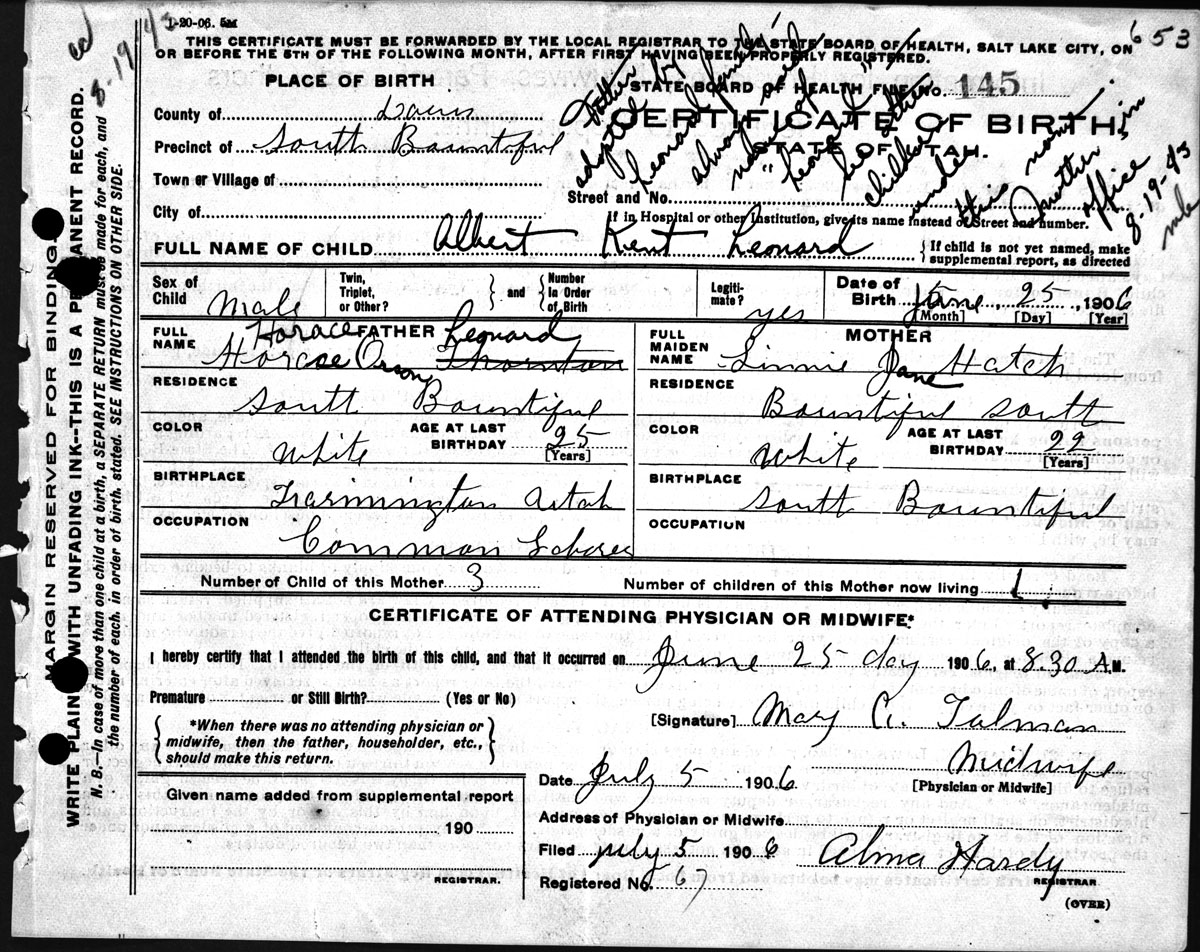 1-20-06. 5M
653
THIS CERTIFICATE MUST BE FORWARDED BY THE LOCAL REGISTRAR TO THE STATE BOARD OF HEALTH, SALT LAKE CITY, ON
OR BEFORE THE 5TH OF THE FOLLOWING MONTH, AFTER FIRST HAVING BEEN PROPERLY REGISTERED.
PLACE OF BIRTH
STATE BOARD OF HEALTH FILE NO. 145
County of Davis
CERTIFICATE OF BIRTH
Precinct of South Bountiful
STATE OF UTAH.
Town or Village of
Street and No.
City of
If in Hospital or other Institution, give its name instead of Street and number.
Father
adopted by
Leonard family
always used
name of
"Leonard"
children
under
this name
in
office
8-19-43
FULL NAME OF CHILD Albert Kent Leonard
{If child is not yet named, make
supplemental report, as directed
Sex of Child Male
Twin, Triplet, or Other? } and { Number in Order of Birth
Legiti-mate? yes
Date of Birth June, 25, 1906
[Month] [Day] [Year]
FULL NAME FATHER
Horace Leonard
Horace Orson Thornton
RESIDENCE
South Bountiful
COLOR White AGE AT LAST BIRTHDAY 25
[Years]
BIRTHPLACE
Farmington Utah
OCCUPATION
Common Laborer
FULL MAIDEN NAME MOTHER
Linnie Jane Hatch
RESIDENCE
Bountiful South
COLOR White AGE AT LAST BIRTHDAY 22
[Years]
BIRTHPLACE
South Bountiful
OCCUPATION
Number of Child of this Mother 3 Number of children of this Mother now living 1
CERTIFICATE OF ATTENDING PHYSICIAN OR MIDWIFE*
I hereby certify that I attended the birth of this child, and that it occurred on June 25 day 1906, at 8.30 A.M.
Premature or Still Birth? (Yes or No)
{*When there was no attending physician or
midwife, then the father, householder, etc.,
should make this return.}
[Signature] Mary A. Talman
Midwife
[Physician or Midwife]
Date July 5 1906
Given name added from supplemental report
190
REGISTRAR.
Address of Physician or Midwife
Filed July 5 1906 Alma Hardy
REGISTRAR
Registered No. 67
(OVER)
MARGIN RESERVED FOR BINDING.
WRITE PLAINLY WITH UNFADING INK--THIS IS A PERMANENT RECORD.
N. B.—In case of more than one child at a birth, a SEPARATE RETURN must be made for each, and
the number of each, in order of birth stated. SEE INSTRUCTIONS ON OTHER SIDE.
8-19-43